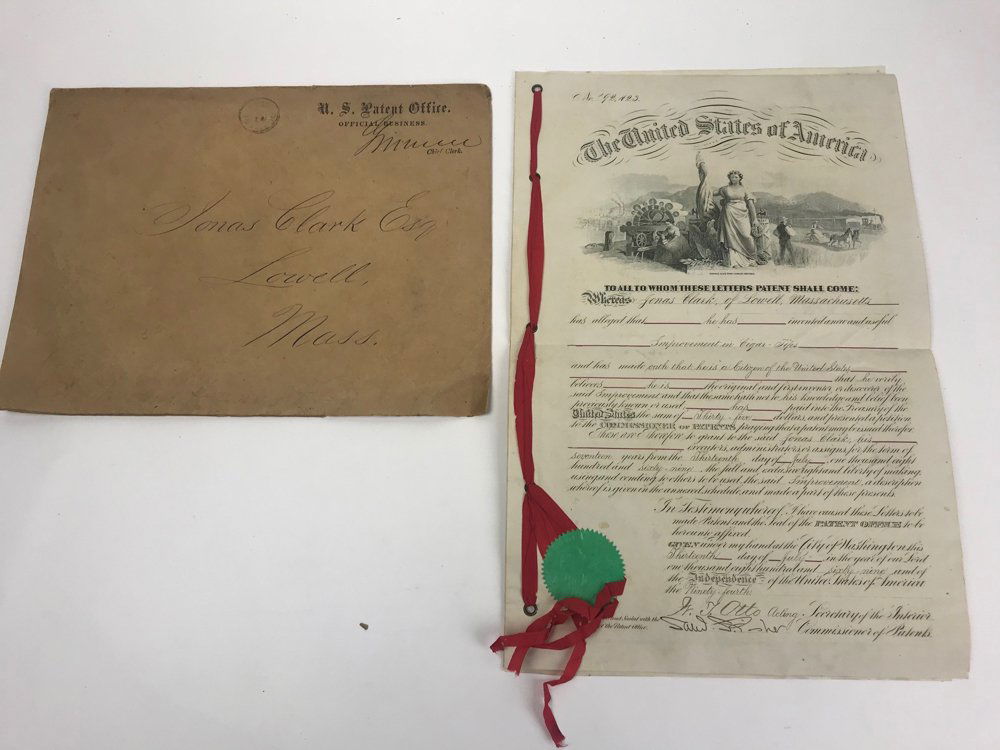 U. S. Patent Office.
OFFICIAL BUSINESS.
Chief Clerk.
Jonas Clark Esq
Lowell,
Mass.
No. 92,423.
The United States of America
TO ALL TO WHOM THESE LETTERS PATENT SHALL COME:
Whereas Jonas Clark, of Lowell, Massachusetts
has alleged that he has invented a new and useful
Improvement in Cigar-Tips
and has made oath that he is a Citizen of the United States
that he verily
believes he is the original and first inventor or discoverer of the
said Improvement and that the same hath not to his knowledge and belief been
previously known or used has paid into the Treasury of the
United States the sum of Thirty five dollars, and presented a petition
to the COMMISSIONER OF PATENTS praying that a patent may be issued therefor.
These are Therefore to grant to the said Jonas Clark, his
executors, administrators or assigns for the term of
seventeen years from the Thirteenth day of July one thousand eight
hundred and sixty-nine the full and exclusive right and liberty of making,
using and vending to others to be used the said Improvement, a description
whereof is given in the annexed schedule and made a part of these presents.
In Testimony whereof, I have caused these Letters to be
made Patent and the Seal of the PATENT OFFICE to be
hereunto affixed
GIVEN under my hand at the City of Washington this
Thirteenth day of July in the year of our Lord
one thousand eight hundred and sixty-nine and of
the Independence of the United States of America
the Ninety-fourth.
W. T. Otto Acting Secretary of the Interior
and Sealed with the
of the Patent Office.
Saml S. Fisher Commissioner of Patents.